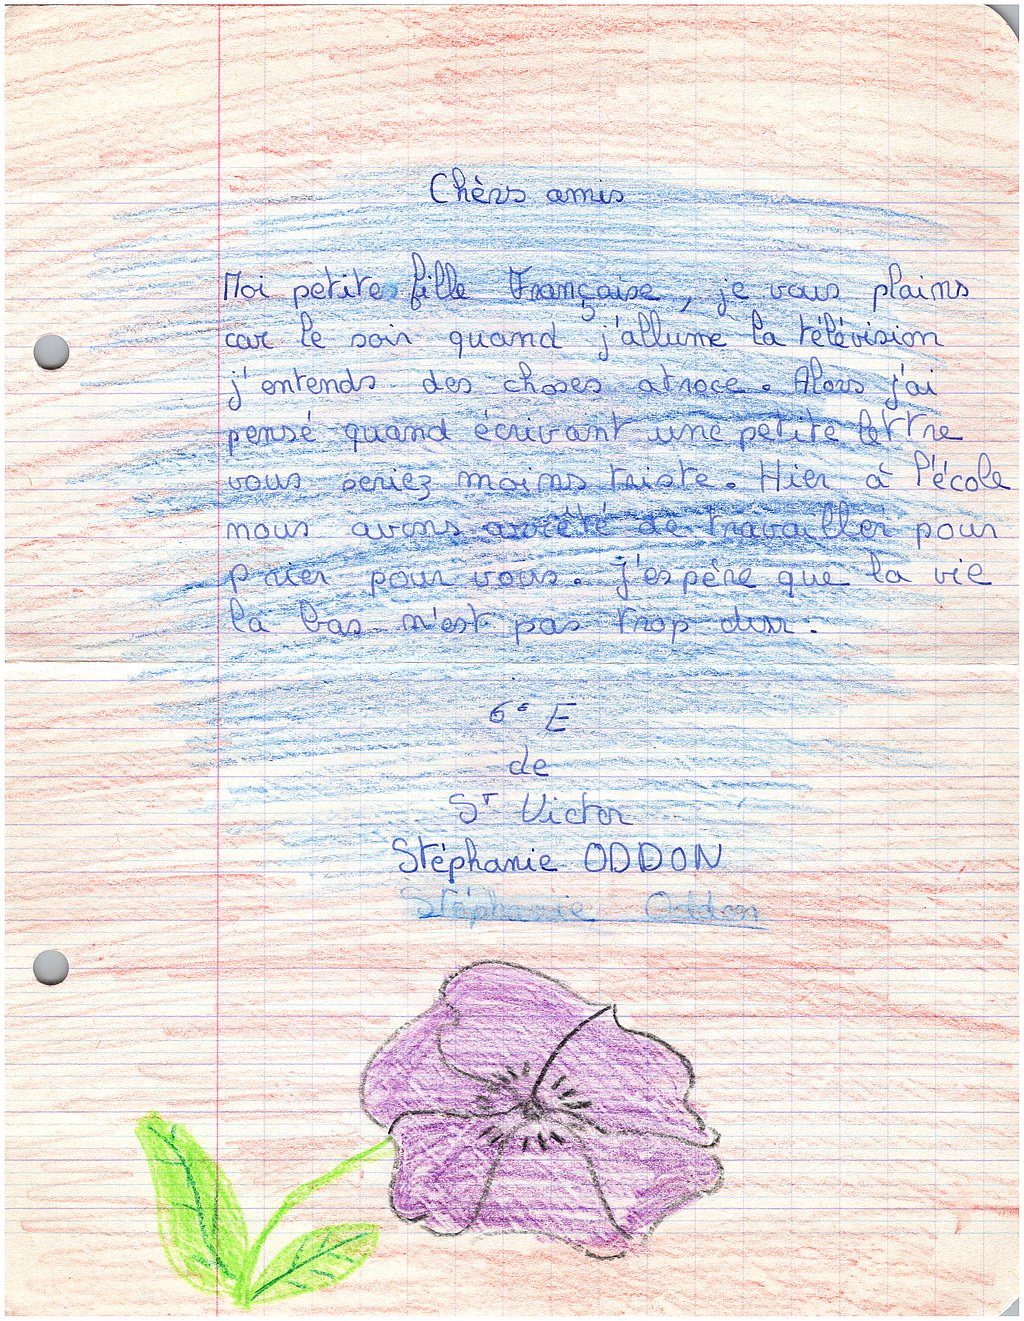 Chèrs amis
Moi petites fille Française, je vous plains
car le soir quand j'allume la télévision
j'entends des choses atroce. Alors j'ai
pensé quand écrivant une petite lettre
vous seriez moins triste. Hier à l'école
nous avons arrêté de travailler pour
prier pour vous. J'espère que la vie
la bas n'est pas trop dur.
6e E
de
St Victor
Stéphanie ODDON
Stéphanie Oddon